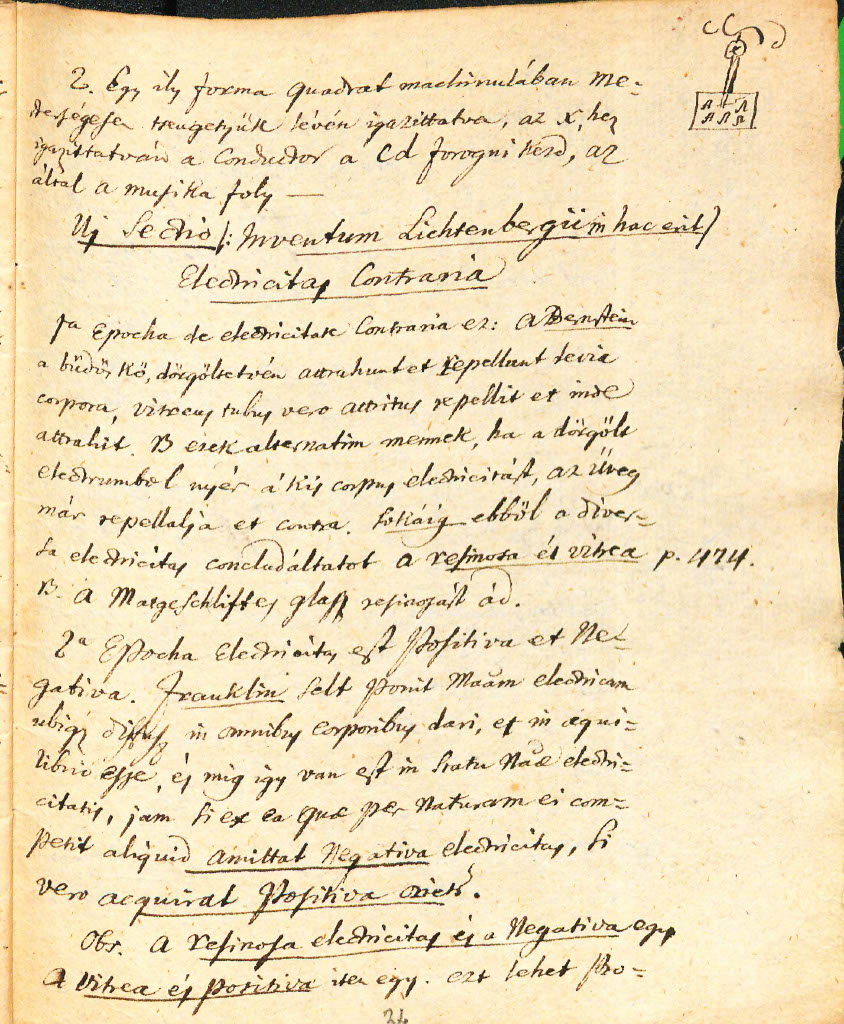 2. Egy ily forma quadrat machinulában me-
tsengetyük lévén igazittatva, az x, hez
igazittatván a Conductor a Cd forogni kezd, az
által a musika foly —
Uj Sectio /: Inventum Lichtenbergii in hac erit /
Electricitas Contraria
1a Epocha de electricitate Contraria ez: A Bernstein
a büdös kő, dörgöltetvén attrahunt et repellunt levia
corpora, vitreus tubus vero attritus repellit et inde
attrahit. B ezek alternatim mennek, ha a dörgölt
electrumbol nyér á kis corpus electricitást, az üveg
már repellálja et contra. Sokáig ebböl a diver-
sa electricitas concludáltatot a resinosa és vitrea p. 474.
B. A Matgeschliftes glass resinosást ád.
2a Epocha Electricitas est Positiva et Ne-
gativa. Franklin Selt ponit Maãm electricam
ubiq in omnibus corporibus dari, et in æqui-
librio esse, és mig igy van est in statu Naæ electri-
citatis, jam si ex ea quæ per Naturam ei com-
petit aliquid amittat Negativa electricitas, si
vero acquirat Positiva
Obs. A resinosa electricitas és a Negativa egy
A vitrea és positiva egy. ezt lehet Pro-